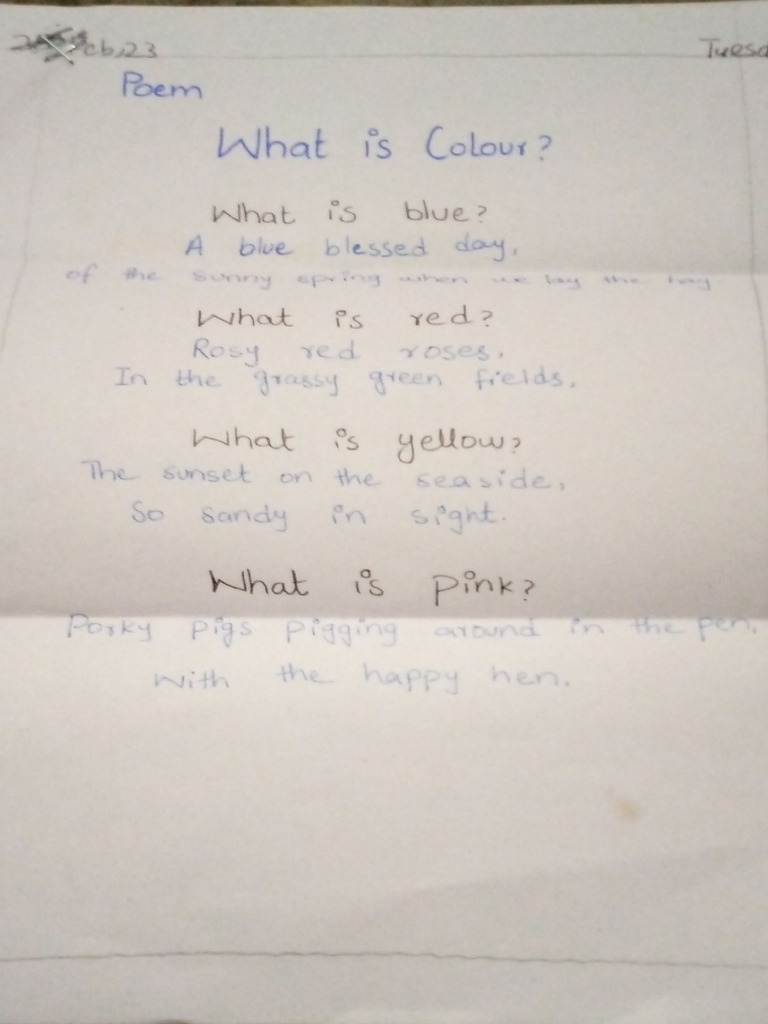 Feb,23 Tuesd
Poem
What is Colour?
What is blue?
A blue blessed day,
of the sunny spring when we lay the hay
What is red?
Rosy red roses,
In the grassy green fields,
What is yellow?
The sunset on the seaside,
So sandy in sight.
What is pink?
Porky pigs pigging around in the pen,
With the happy hen.